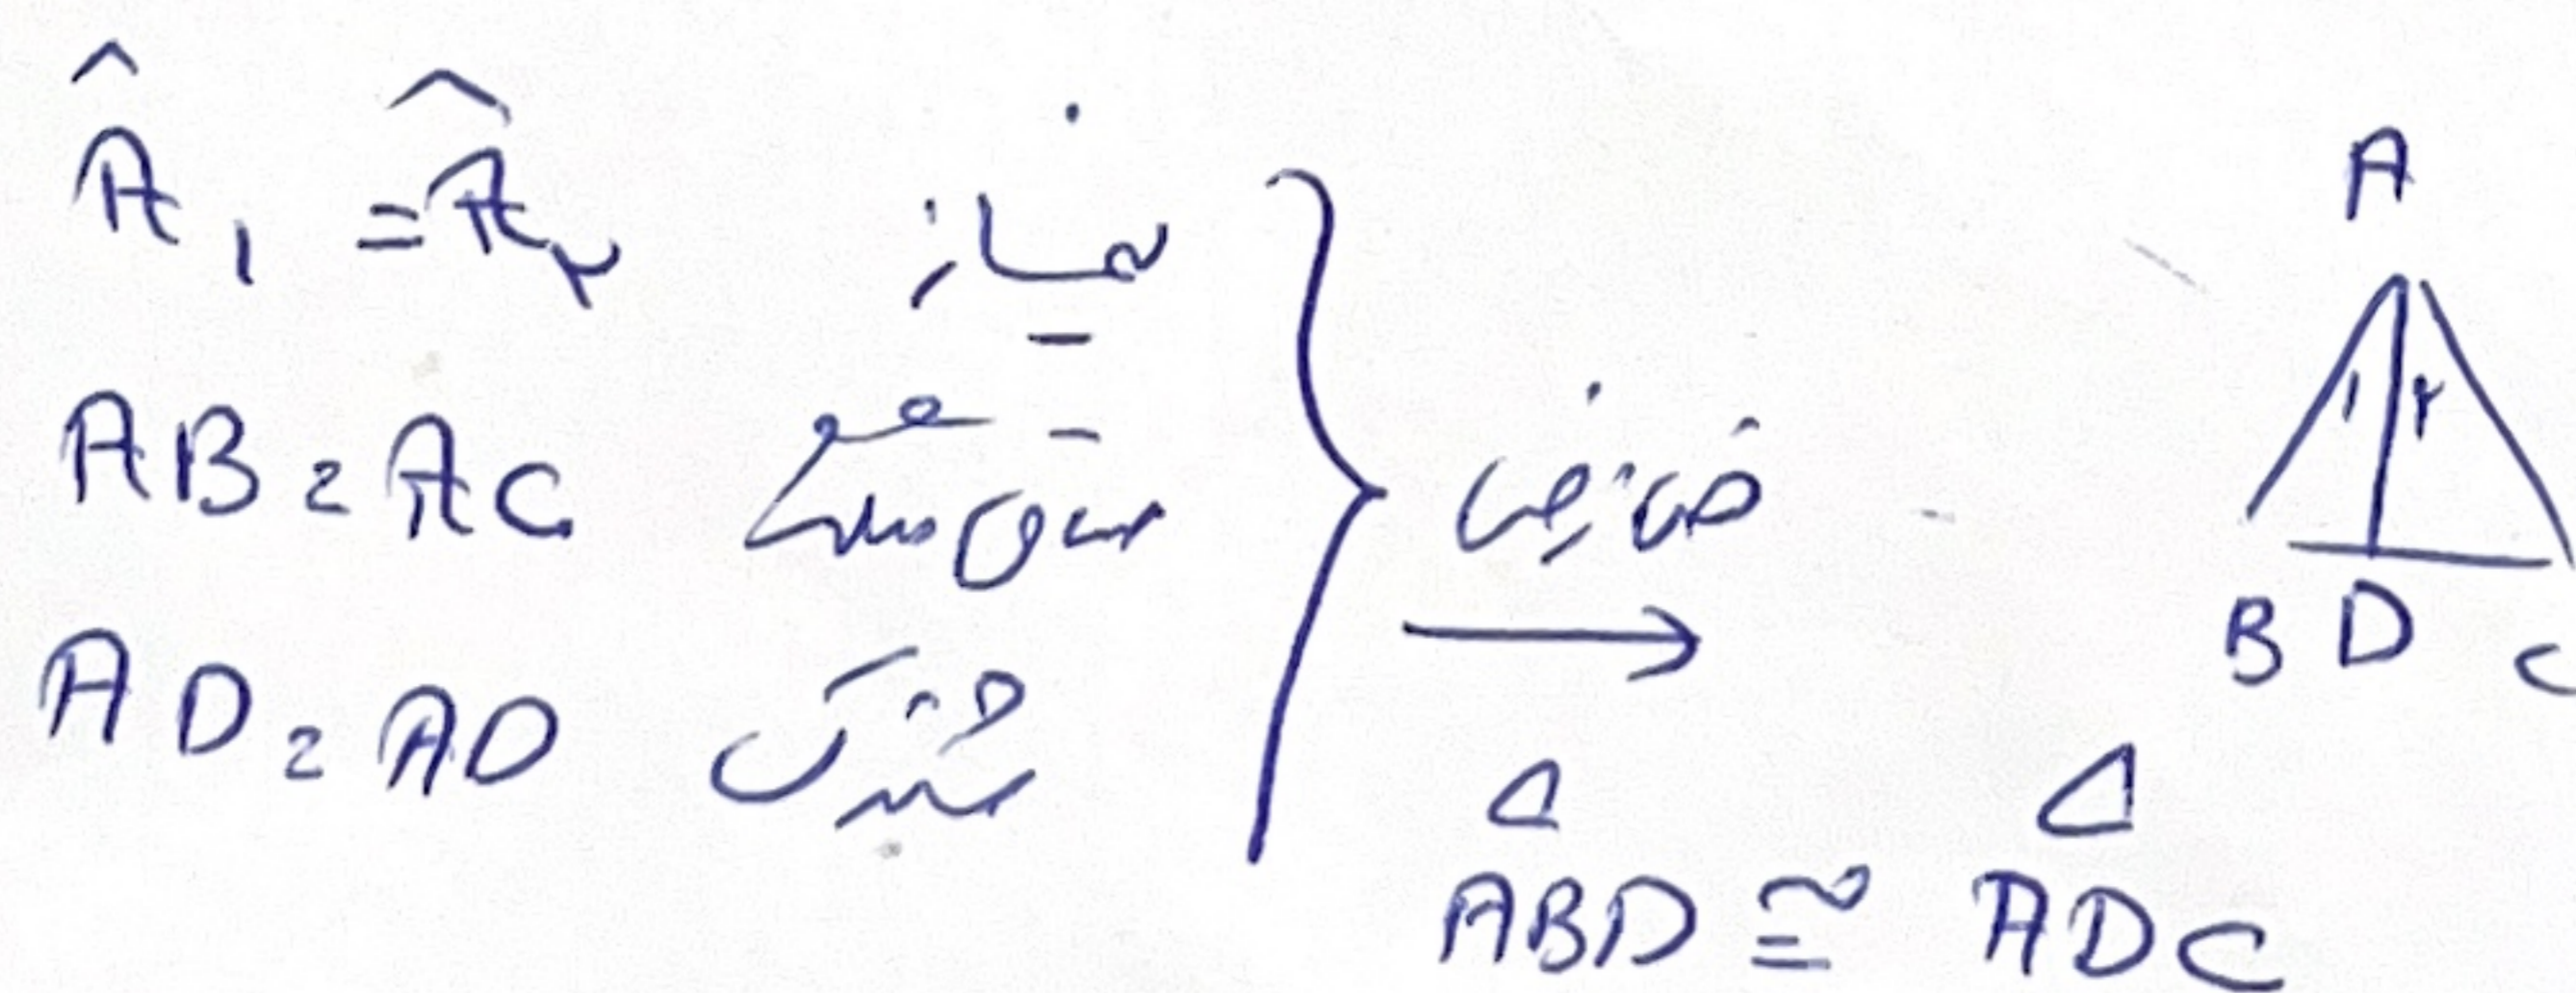 Â₁ = Â₂ نیمساز
AB = AC متساوی الساقین
AD = AD مشترک
ض ز ض
→
△ △
ABD ≅ ADC
A
۱ ۲
B D C